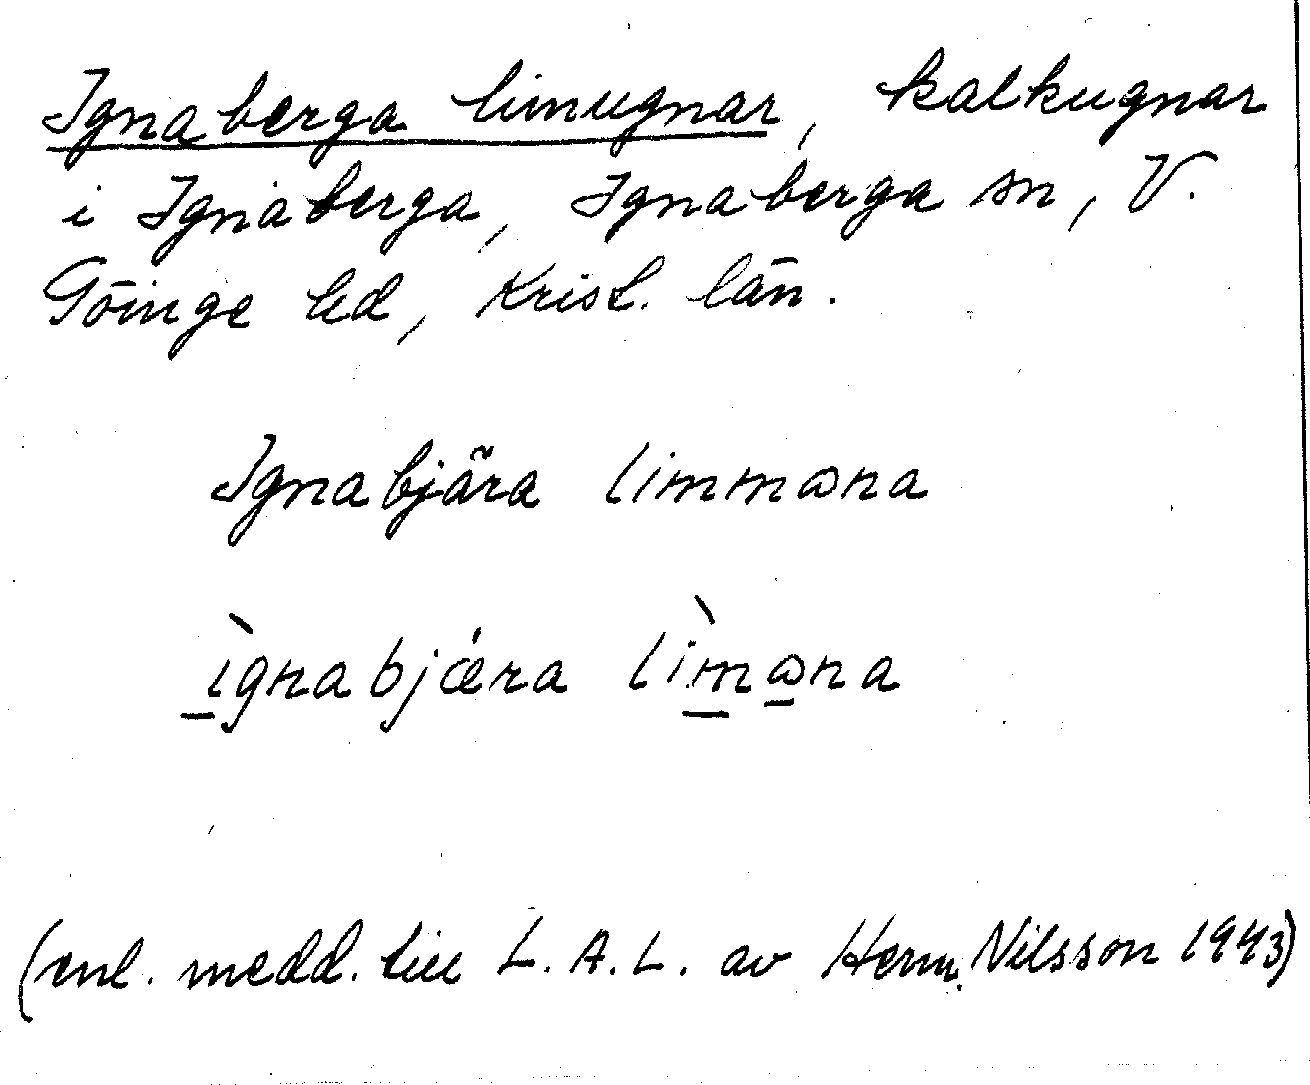 Ignaberga limugnar, kalkugnar
i Ignaberga, Ignaberga sn, V.
Göinge hd, Krist. län.
Ignabjära limməna
ìgnabjǽra lìməna
(enl. medd. till L. A. L. av Herm. Nilsson 1943)